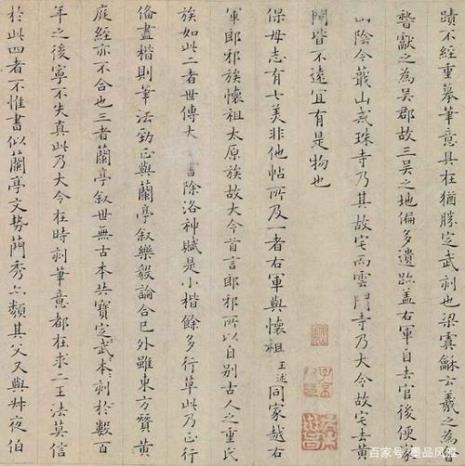 蹟不經重摹筆意具在猶勝定武刻也梁虞龢云羲之為會
稽獻之為吳郡故三吳之地偏多遺跡盖右軍自去官後便家
山陰今蕺山戒珠寺乃其故宅而雲門寺乃大令故宅去黃
閍皆不遠宜有是物也
保母志有七美非他帖所及一者右軍與懷祖王述同家越右
軍郎邪族懷祖太原族故大令首言郎邪所以自别古人之重氏
族如此二者世傳大書除洛神賦是小楷餘多行草此乃正行
俻盡楷則筆法勁正與蘭亭叙樂毅論合已外雖東方贊黃
庭經亦不合也三者蘭亭叙世無古本共寶定武本刻於數百
年之後寧不失真此乃大令在時刻筆意都在求二王法莫信
於此四者不惟書似蘭亭文勢蕳秀亦類其父又與艸夜伯
百家号/墨品风雅